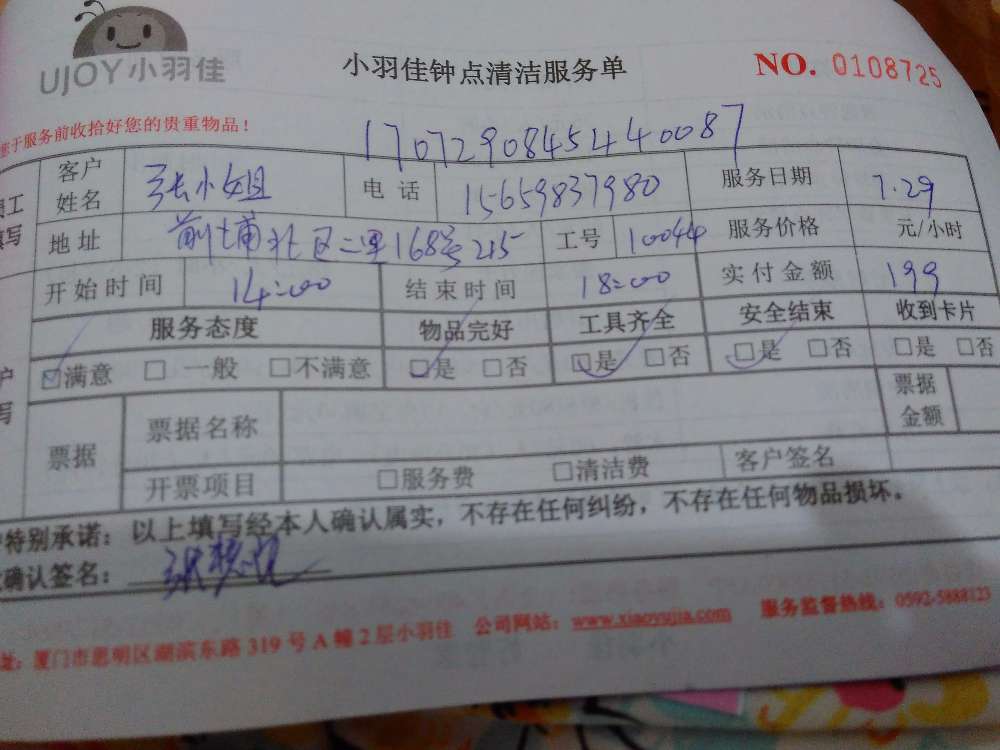 UJOY小羽佳
小羽佳钟点清洁服务单
NO. 0108725
于服务前收拾好您的贵重物品！
17072908454440087
客户姓名 张小姐 电话 15659837980 服务日期 7.29
地址 前埔北区二里168号215 工号 10044 服务价格 元/小时
开始时间 14:00 结束时间 18:00 实付金额 199
服务态度 物品完好 工具齐全 安全结束 收到卡片
☑满意 □一般 □不满意 ☑是 □否 ☑是 □否 ☑是 □否 □是 □否
票据 票据名称 票据金额
开票项目 □服务费 □清洁费 客户签名
特别承诺：以上填写经本人确认属实，不存在任何纠纷，不存在任何物品损坏。
确认签名：
址：厦门市思明区湖滨东路319号A幢2层小羽佳 公司网站：www.xiaoyujia.com 服务监督热线：0592-5888123